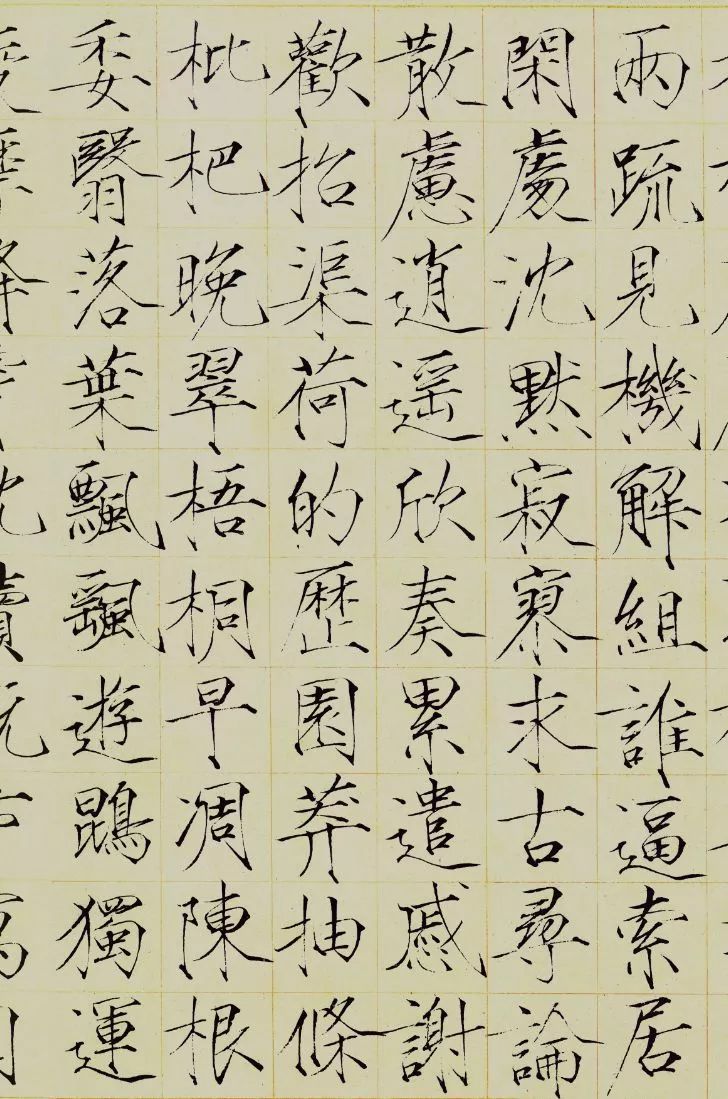 兩疏見機解組誰逼索居
閑處沈默寂寥求古尋論
散慮逍遥欣奏累遣慼謝
歡招渠荷的歷園莽抽條
枇杷晚翠梧桐早凋陳根
委翳落葉飄飖遊鵾獨運